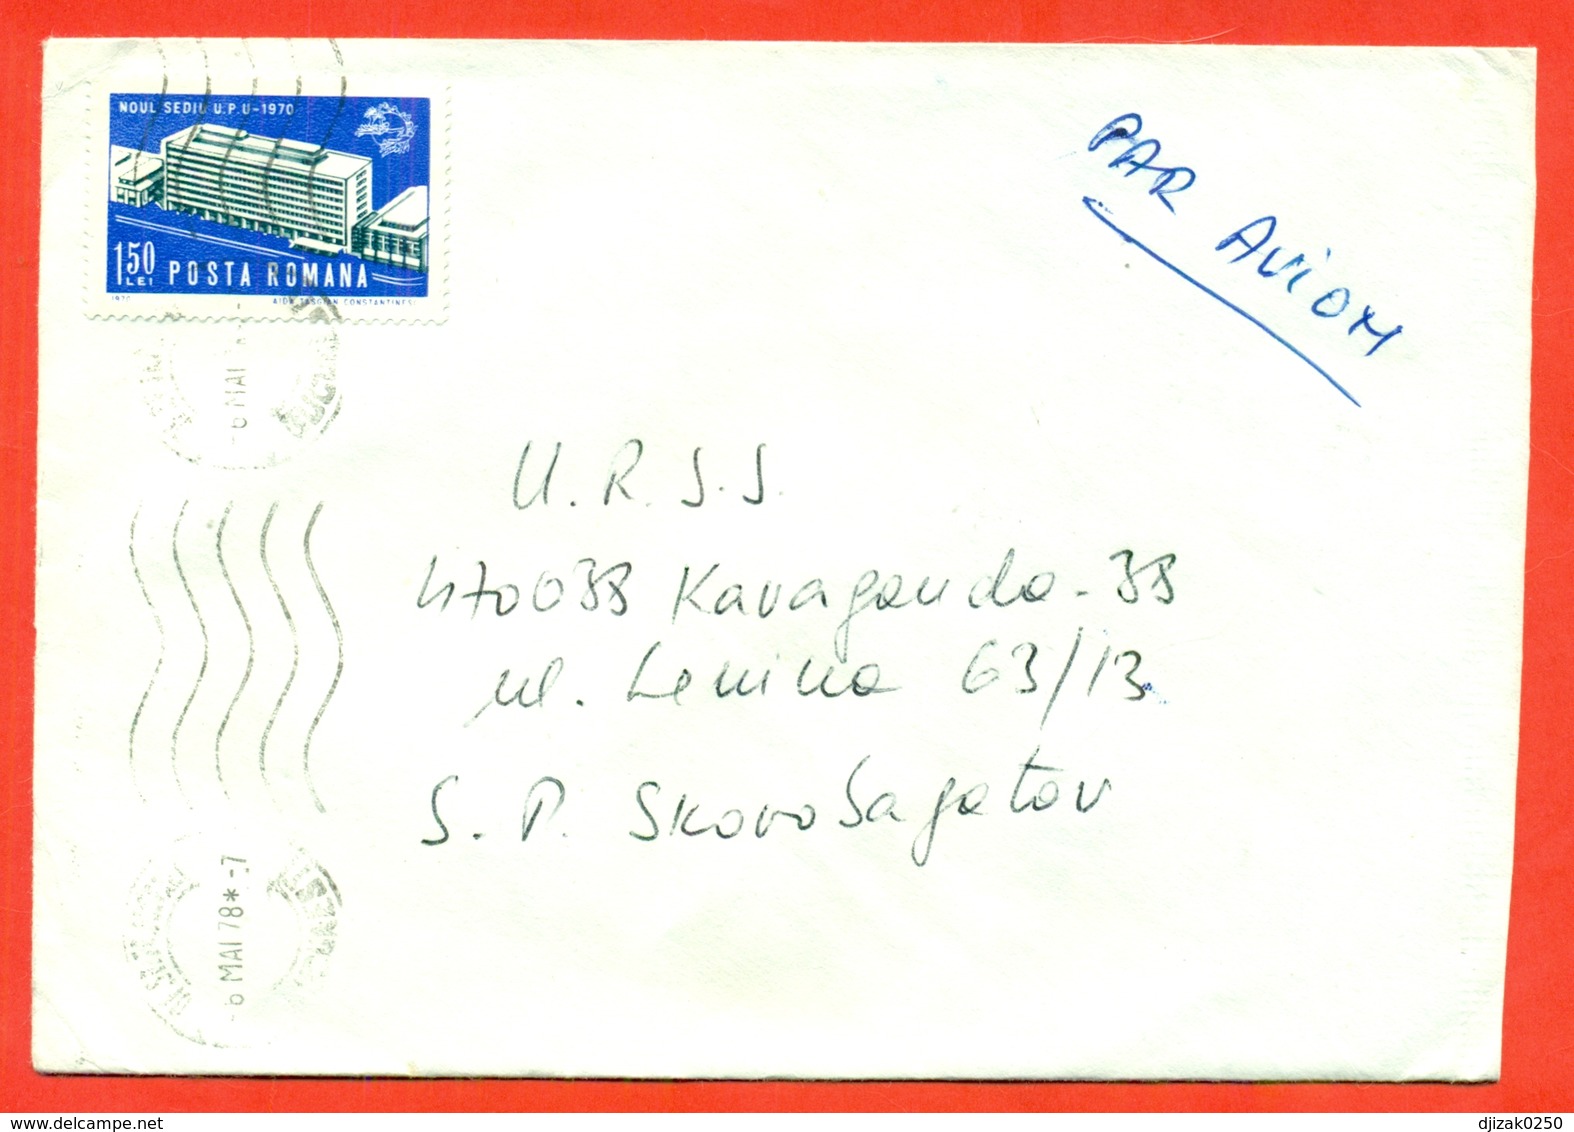 NOUL SEDIU U.P.U-1970
1.50
LEI
POSTA ROMANA
1970
AIDA TASGIAN CONSTANTINESCU
PAR AVION
-6 MAI
U.R.S.S.
470038 Karaganda-38
ul. Lenina 63/13
S. P. Skorobagatov
-6 MAI 78*-7
djizak0250